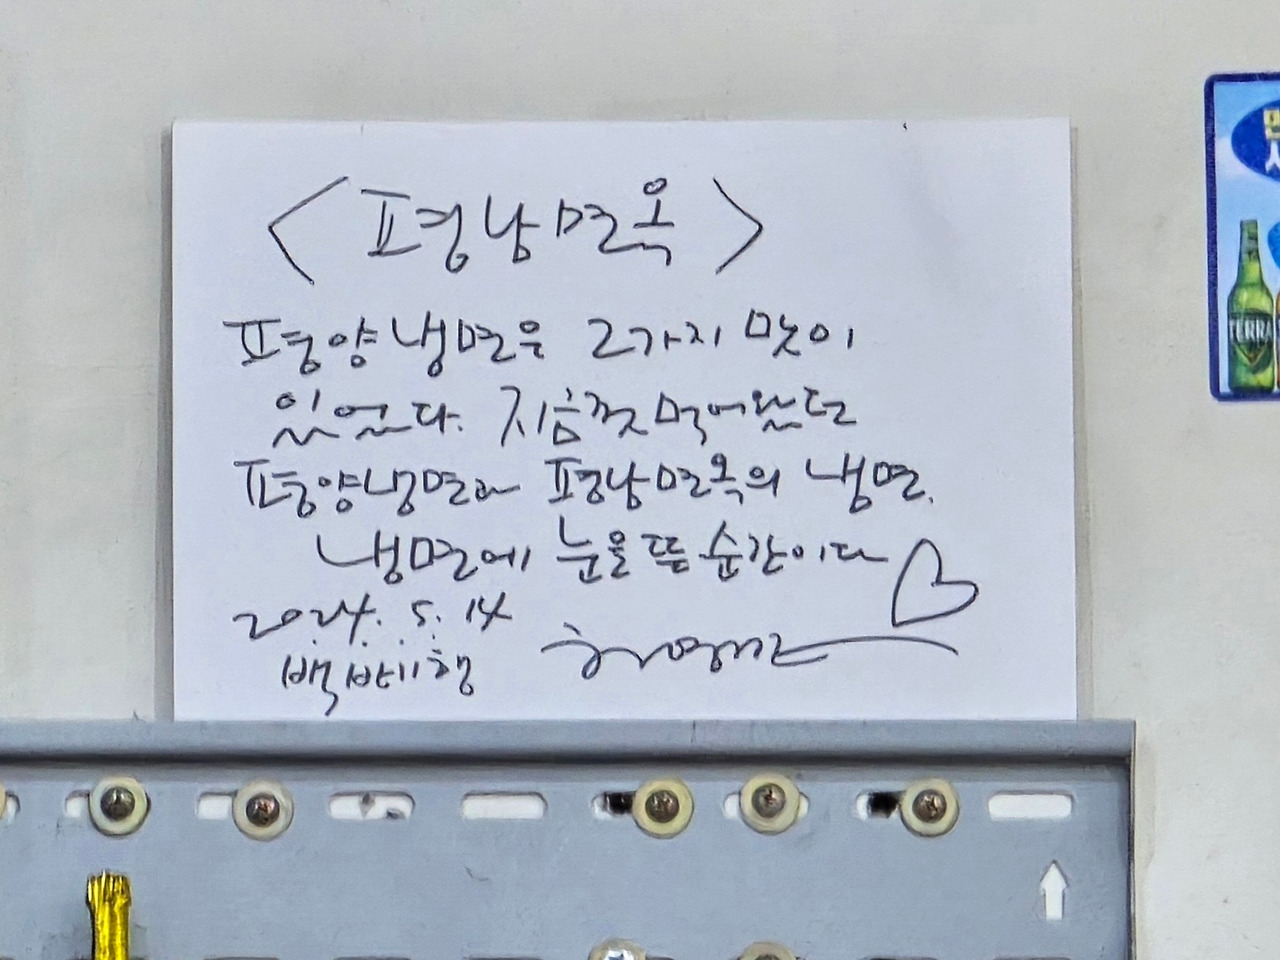 <평남면옥>
평양냉면은 2가지 맛이
있었다. 지금껏 먹어왔던
평양냉면과 평남면옥의 냉면.
냉면에 눈을 뜬 순간이다
2024. 5. 14
백반기행
TERRA